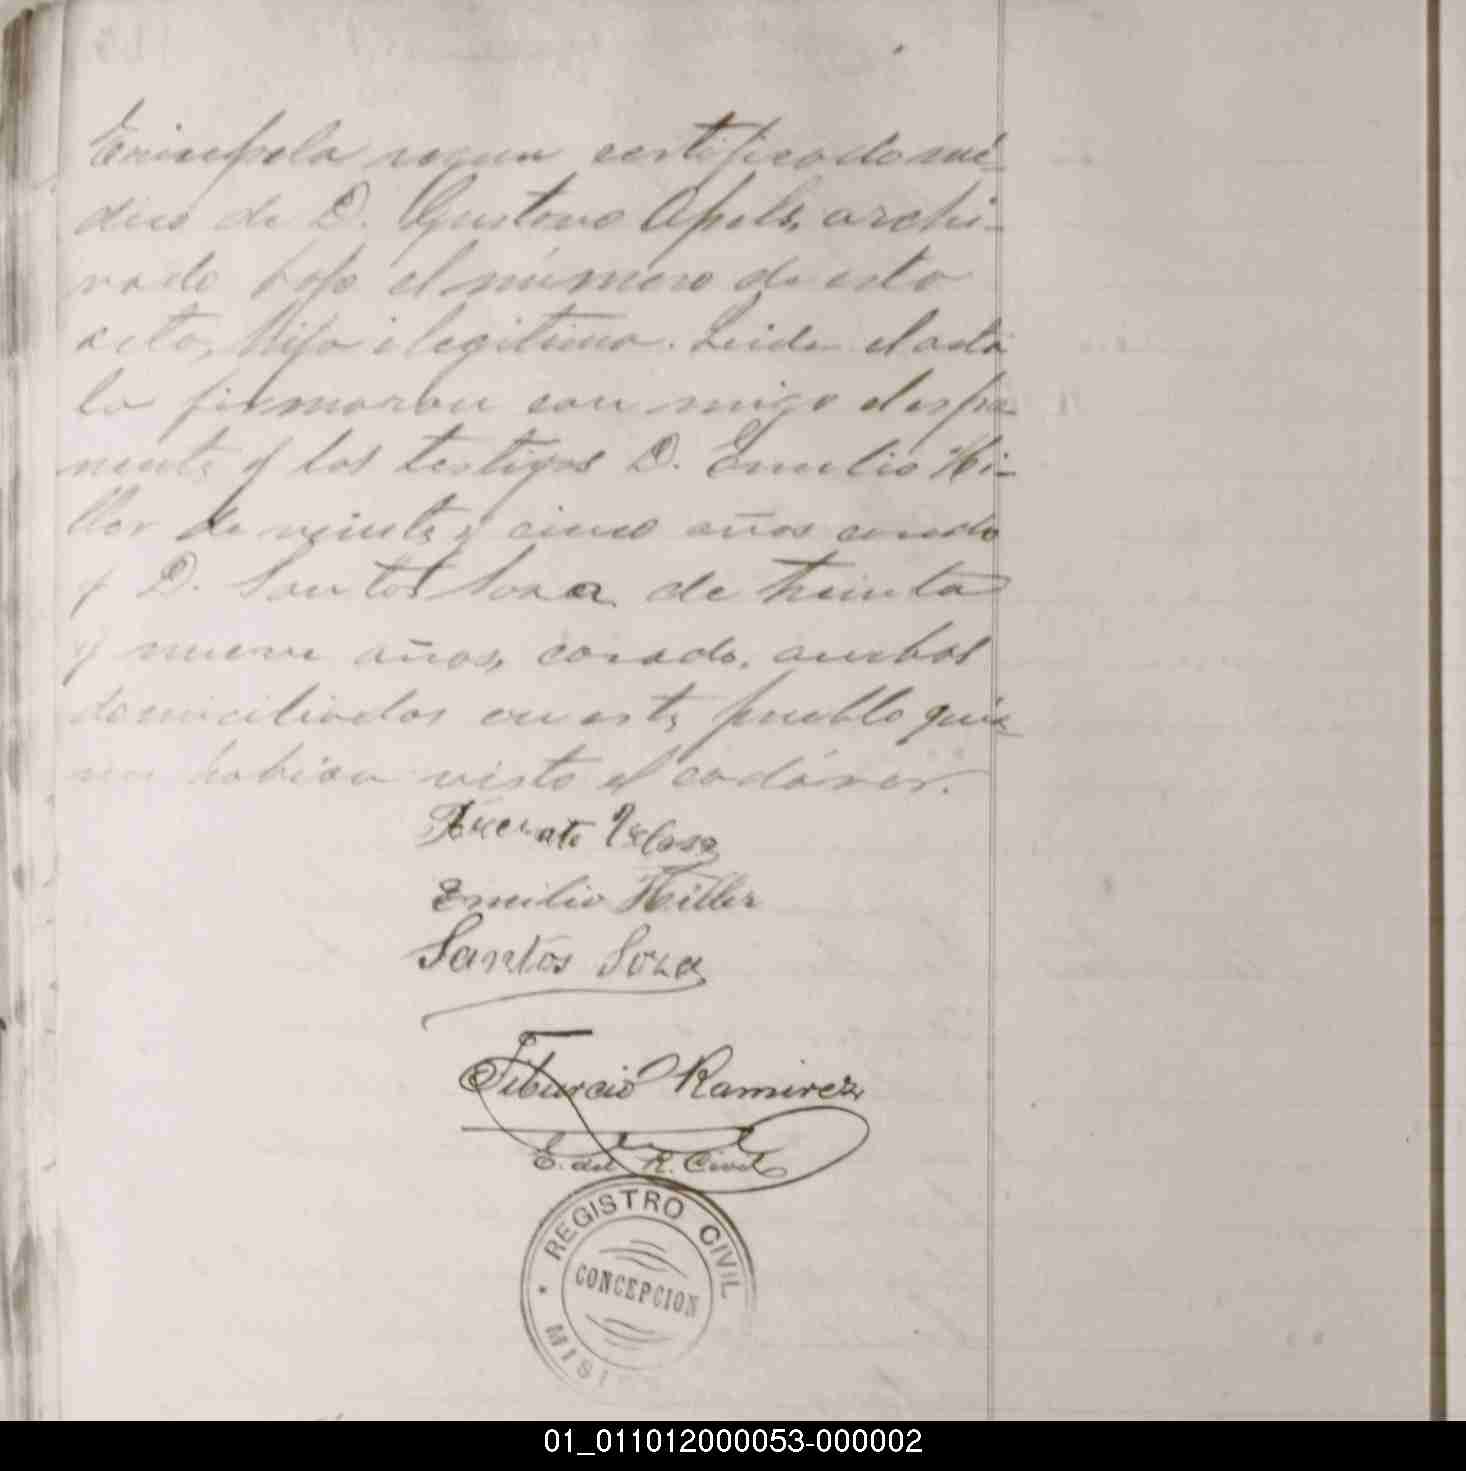 Erisipela segun certificado mé-
dico de D. Gustavo Apels, archi-
vado bajo el número de esta
acta, Hijo ilegitimo. Leida el acta
la firmaron con migo el espo-
nente y los testigos D. Emilio Hi-
ller de veinte y cinco años casado
y D. Santos Soza de treinta
y nueve años, casado, ambos
domiciliados en este pueblo quie-
nes habian visto el cadáver.
Emilio Hiller
Santos Soza
Tiburcio Ramirez
E. del R. Civil
REGISTRO CIVIL
CONCEPCION
* MISI
01_011012000053-000002